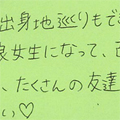 出身地巡りもで
良女生になって、
、たくさんの友達
い♡